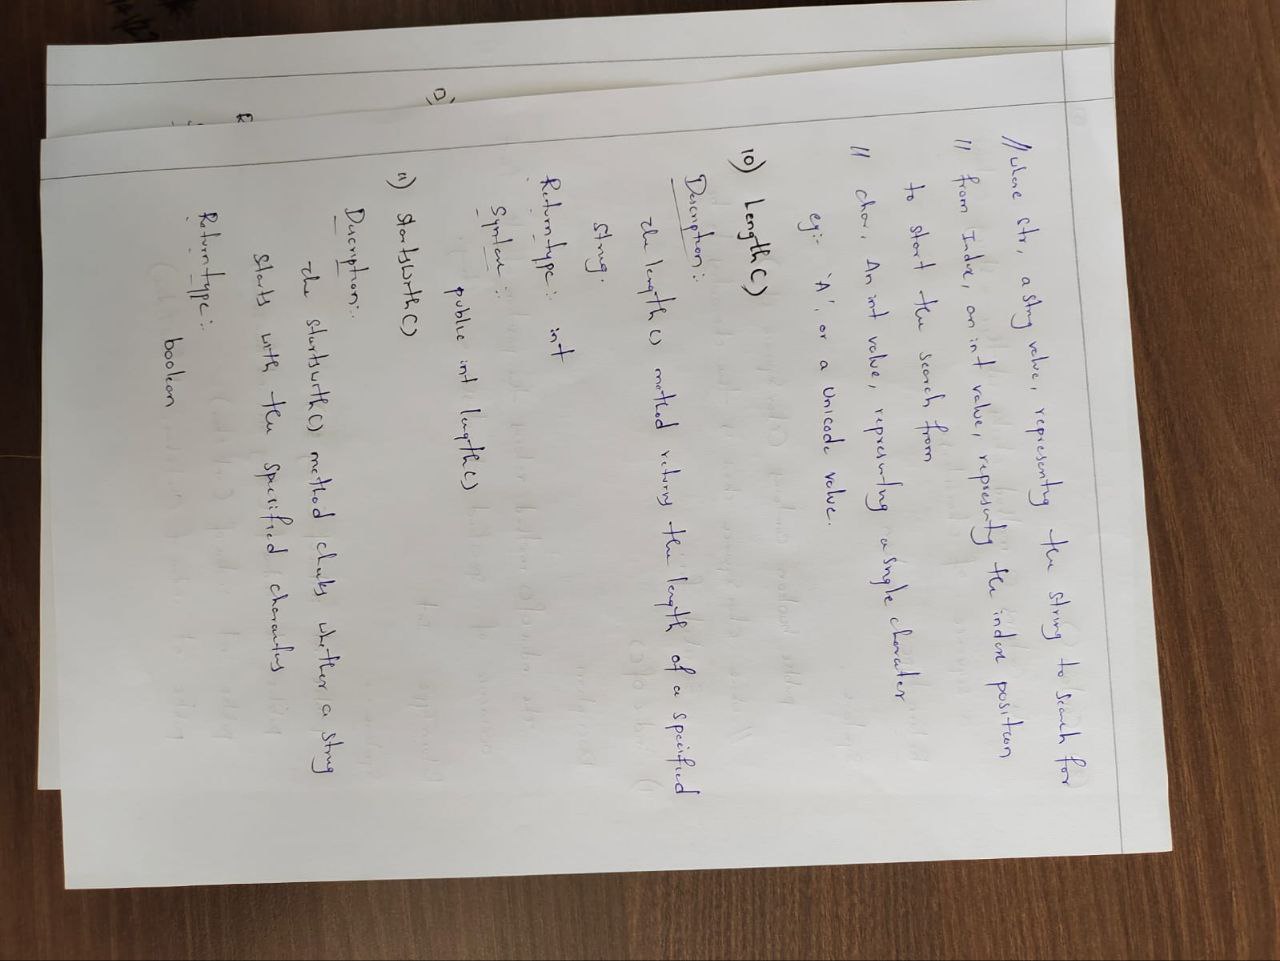 // where str, a string value, representing the string to search for
// from Index, an int value, representing the index position
to start the search from
// char, An int value, representing a single character
eg:- 'A', or a Unicode value.
10) Length()
Description:-
The length() method returns the length of a specified
string.
Return type:- int
Syntax:-
public int length()
11) startswith()
Description:-
The startswith() method checks whether a string
starts with the specified characters
Return type:-
boolean